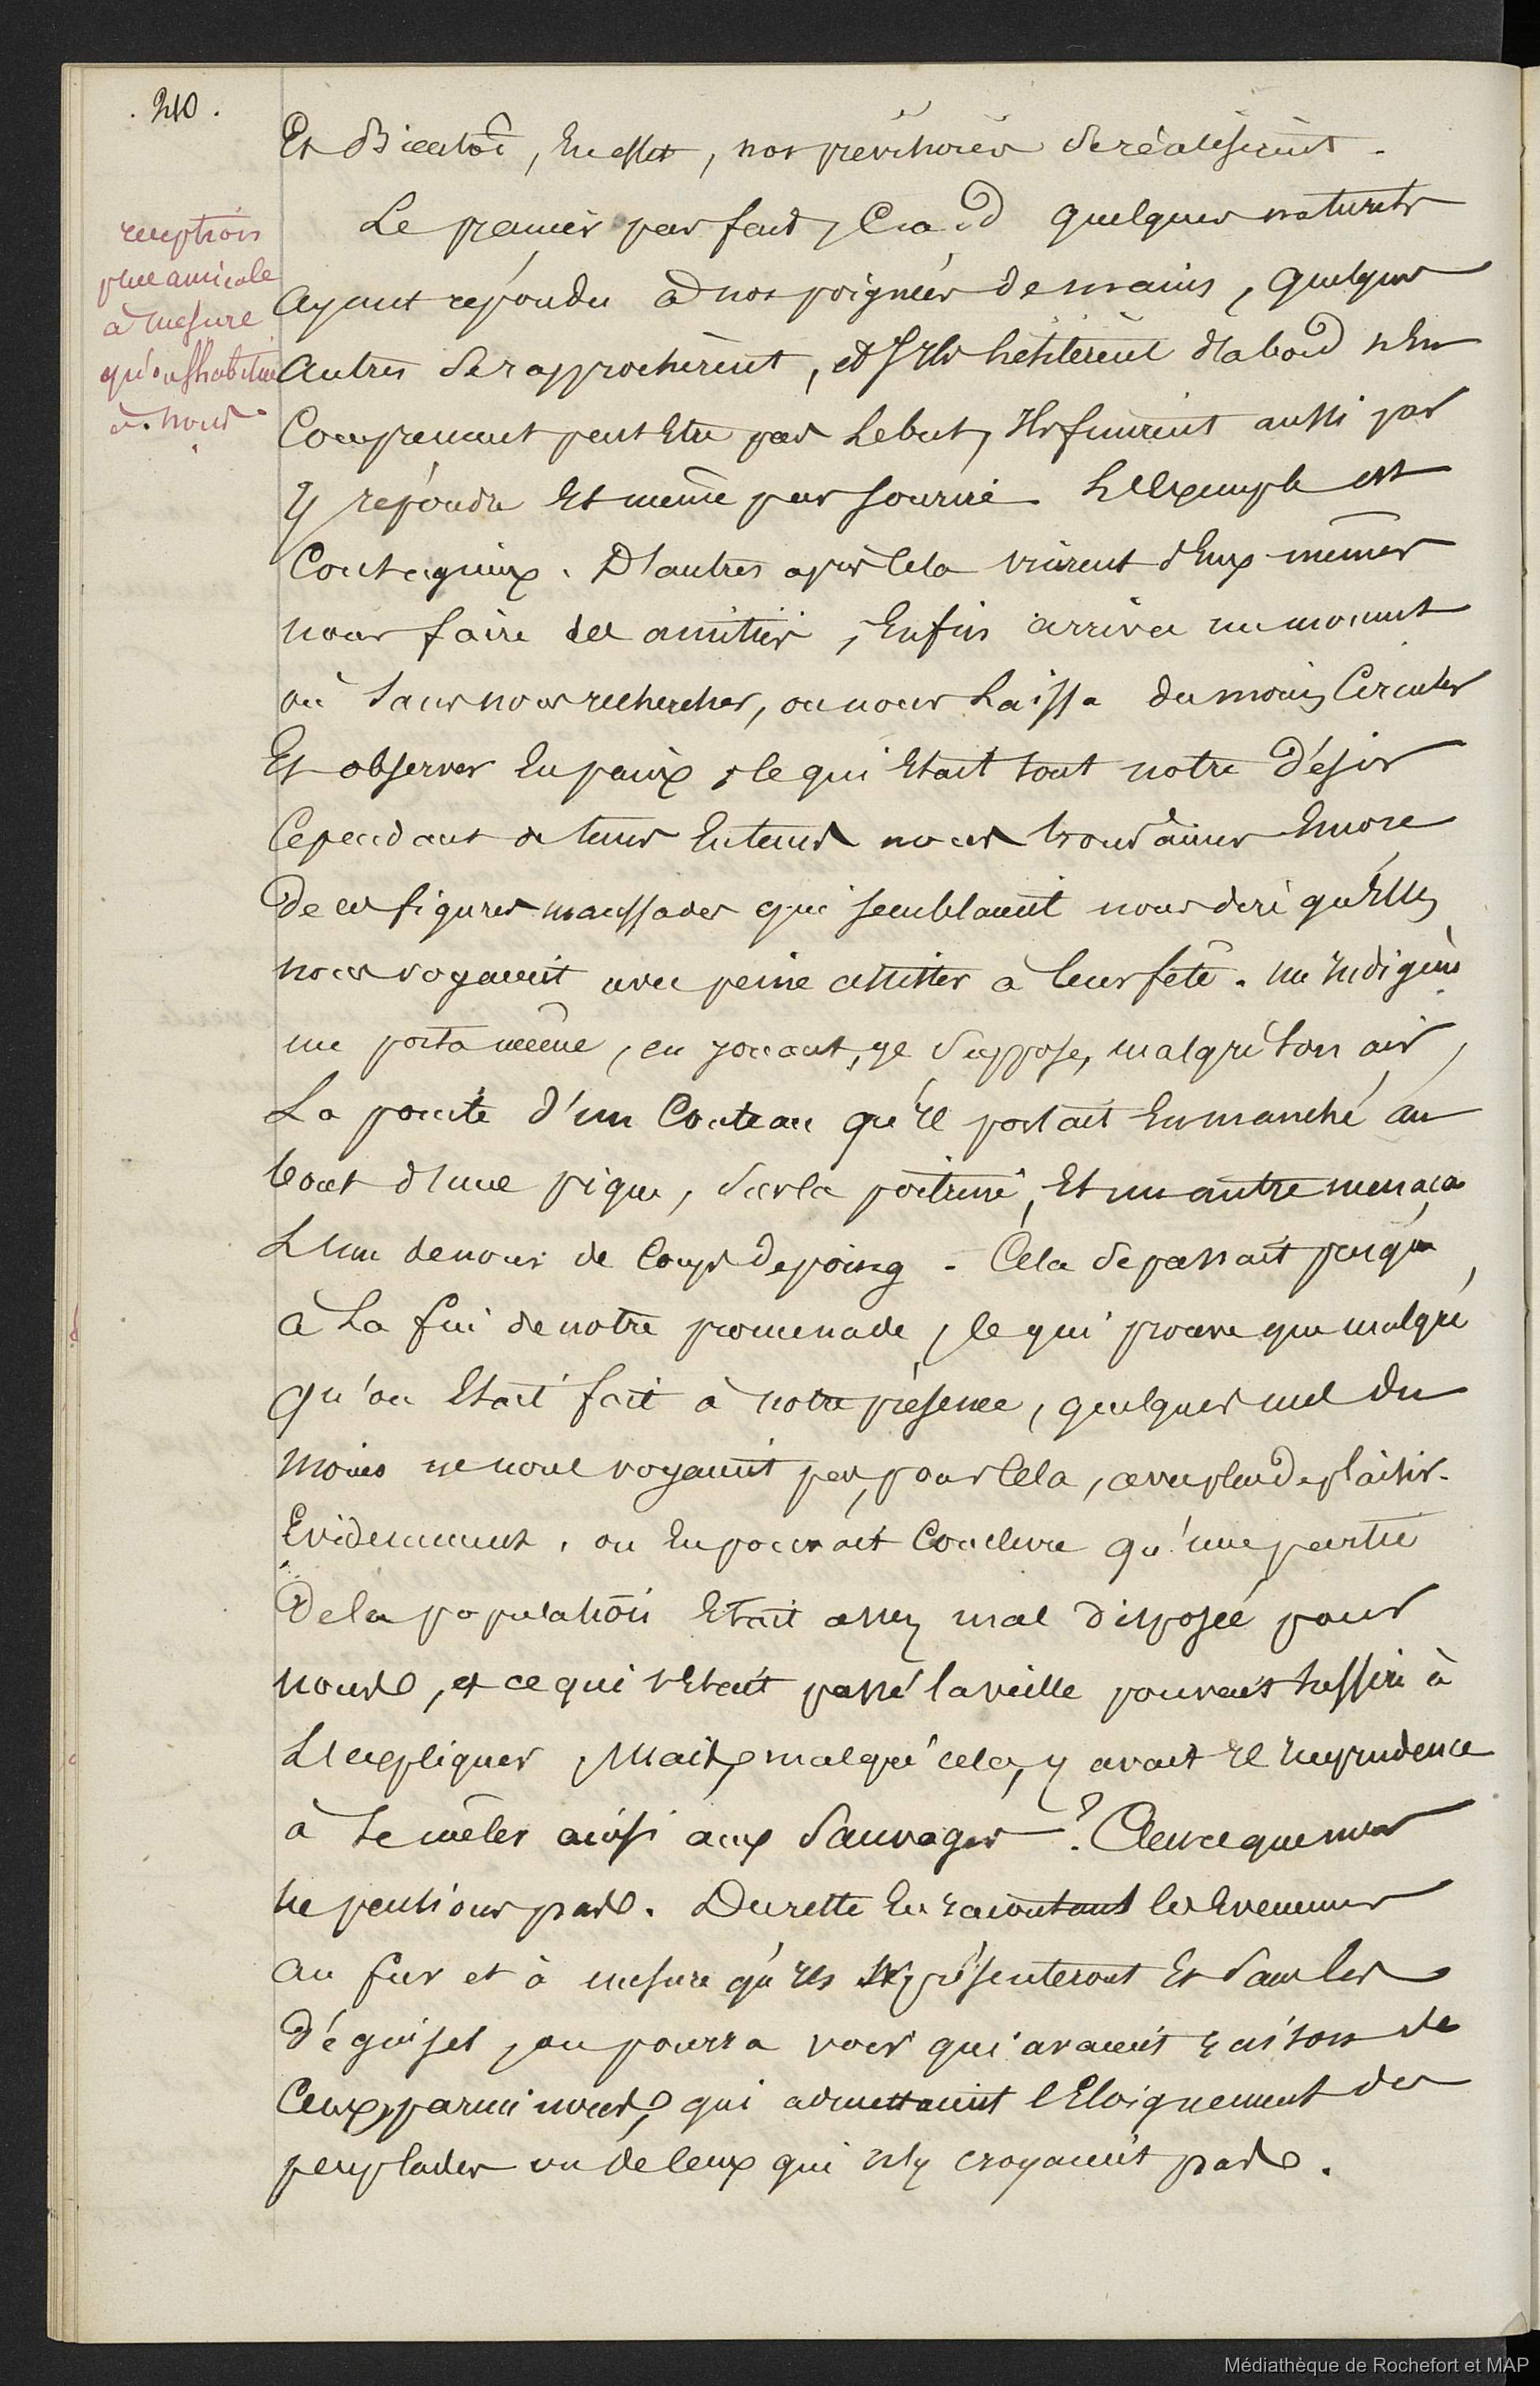 . 210 .
réception
plus amicale
à mesure
qu'on s'habitue
à nous
Et Bientôt, En effet, nos prévisions se réalisèrent.
Le premier pas fait, quelques naturels
ayant répondu à nos poignées de mains, quelques
autres se rapprochèrent, et s'ils hésitèrent d'abord n'En
Comprenant peut Etre pas le but, Ils finirent aussi par
y répondre Et même par sourire. L'Exemple est
Contagieux. D'autres après Cela vinrent d'Eux-mêmes
nous faire des amitiés, Enfin arriva un moment
où sans nous rechercher, on nous Laissa du moins Circuler
Et observer En paix, Ce qui Etait tout notre désir
Cependant de tems En tems nous trouvâmes Encore
De ces figures maussades qui semblaient nous dire qu'Elles
nous voyaient avec peine assister à leur fête. un Indigène
me porta même, en jouant, je suppose, malgré son air,
La pointe d'un Couteau qu'Il portait Emmanché au
bout d'une pique, sur la poitrine, Et un autre menaça
L'un de nous de Coups de poing. Cela se passait presqu'
à La fin de notre promenade, Ce qui prouve que malgré
qu'on Etait fait à notre présence, quelques uns du
moins ne nous voyaient pas, pour Cela, avec plus de plaisir.
Evidemment, on En pouvait Conclure qu'une partie
De la population Etait assez mal disposée pour
nous, et ce qui s'Etait passé la veille pouvait suffire à
L'expliquer, Mais, malgré cela, y avait Il Imprudence
à se mêler ainsi aux Sauvages ? C'est ce que nous
ne pensions pas. Du reste En racontant les Evenemens
au fur et à mesure qu'Ils se présenteront Et sans les
déguiser, on pourra voir qui avaient raison de
Ceux, parmi nous, qui admettaient l'Eloignement des
peuplades ou de Ceux qui n'y croyaient pas.
Médiathèque de Rochefort et MAP